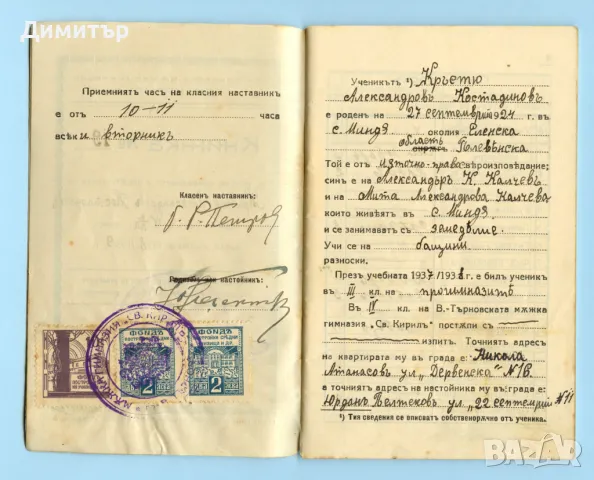 Димитър
Приемниятъ часъ на класния наставникъ
е отъ 10-11 часа
всѣки вторникъ
Класенъ наставникъ:
Родитель или настойникъ:
МѪЖКА ГИМНАЗИЯ "СВ. КИРИЛЪ"
ФОНДЪ
2
ФОНДЪ
2
Ученикътъ ¹) Кръстю
Александровъ Костадиновъ
е роденъ на 27 септемврий 1924 г. въ
с. Миндя околия Еленска
область
окрѫгъ Плевенска
Той е отъ източно-право вѣроизповѣдание;
синъ е на Александъръ К. Калчевъ
и на Мита Александрова Калчева
които живѣятъ въ с. Миндя
и се занимаватъ съ земедѣлие
Учи се на бащини
разноски.
Презъ учебната 1937/1938 г. е билъ ученикъ
въ III кл. на прогимназията
Въ IV кл. на В.-Търновската мѫжка
гимназия „Св. Кирилъ“ постѫпи съ
изпитъ. Точниятъ адресъ
на квартирата му въ града е: Никола
Атанасовъ ул. „Дервенска“ № 18.
а точниятъ адресъ на настойника му въ града е:
Юрданъ Пелтековъ ул. „22 септемврий“ № 11
¹) Тия сведения се вписватъ собственорѫчно отъ ученика.
bazar